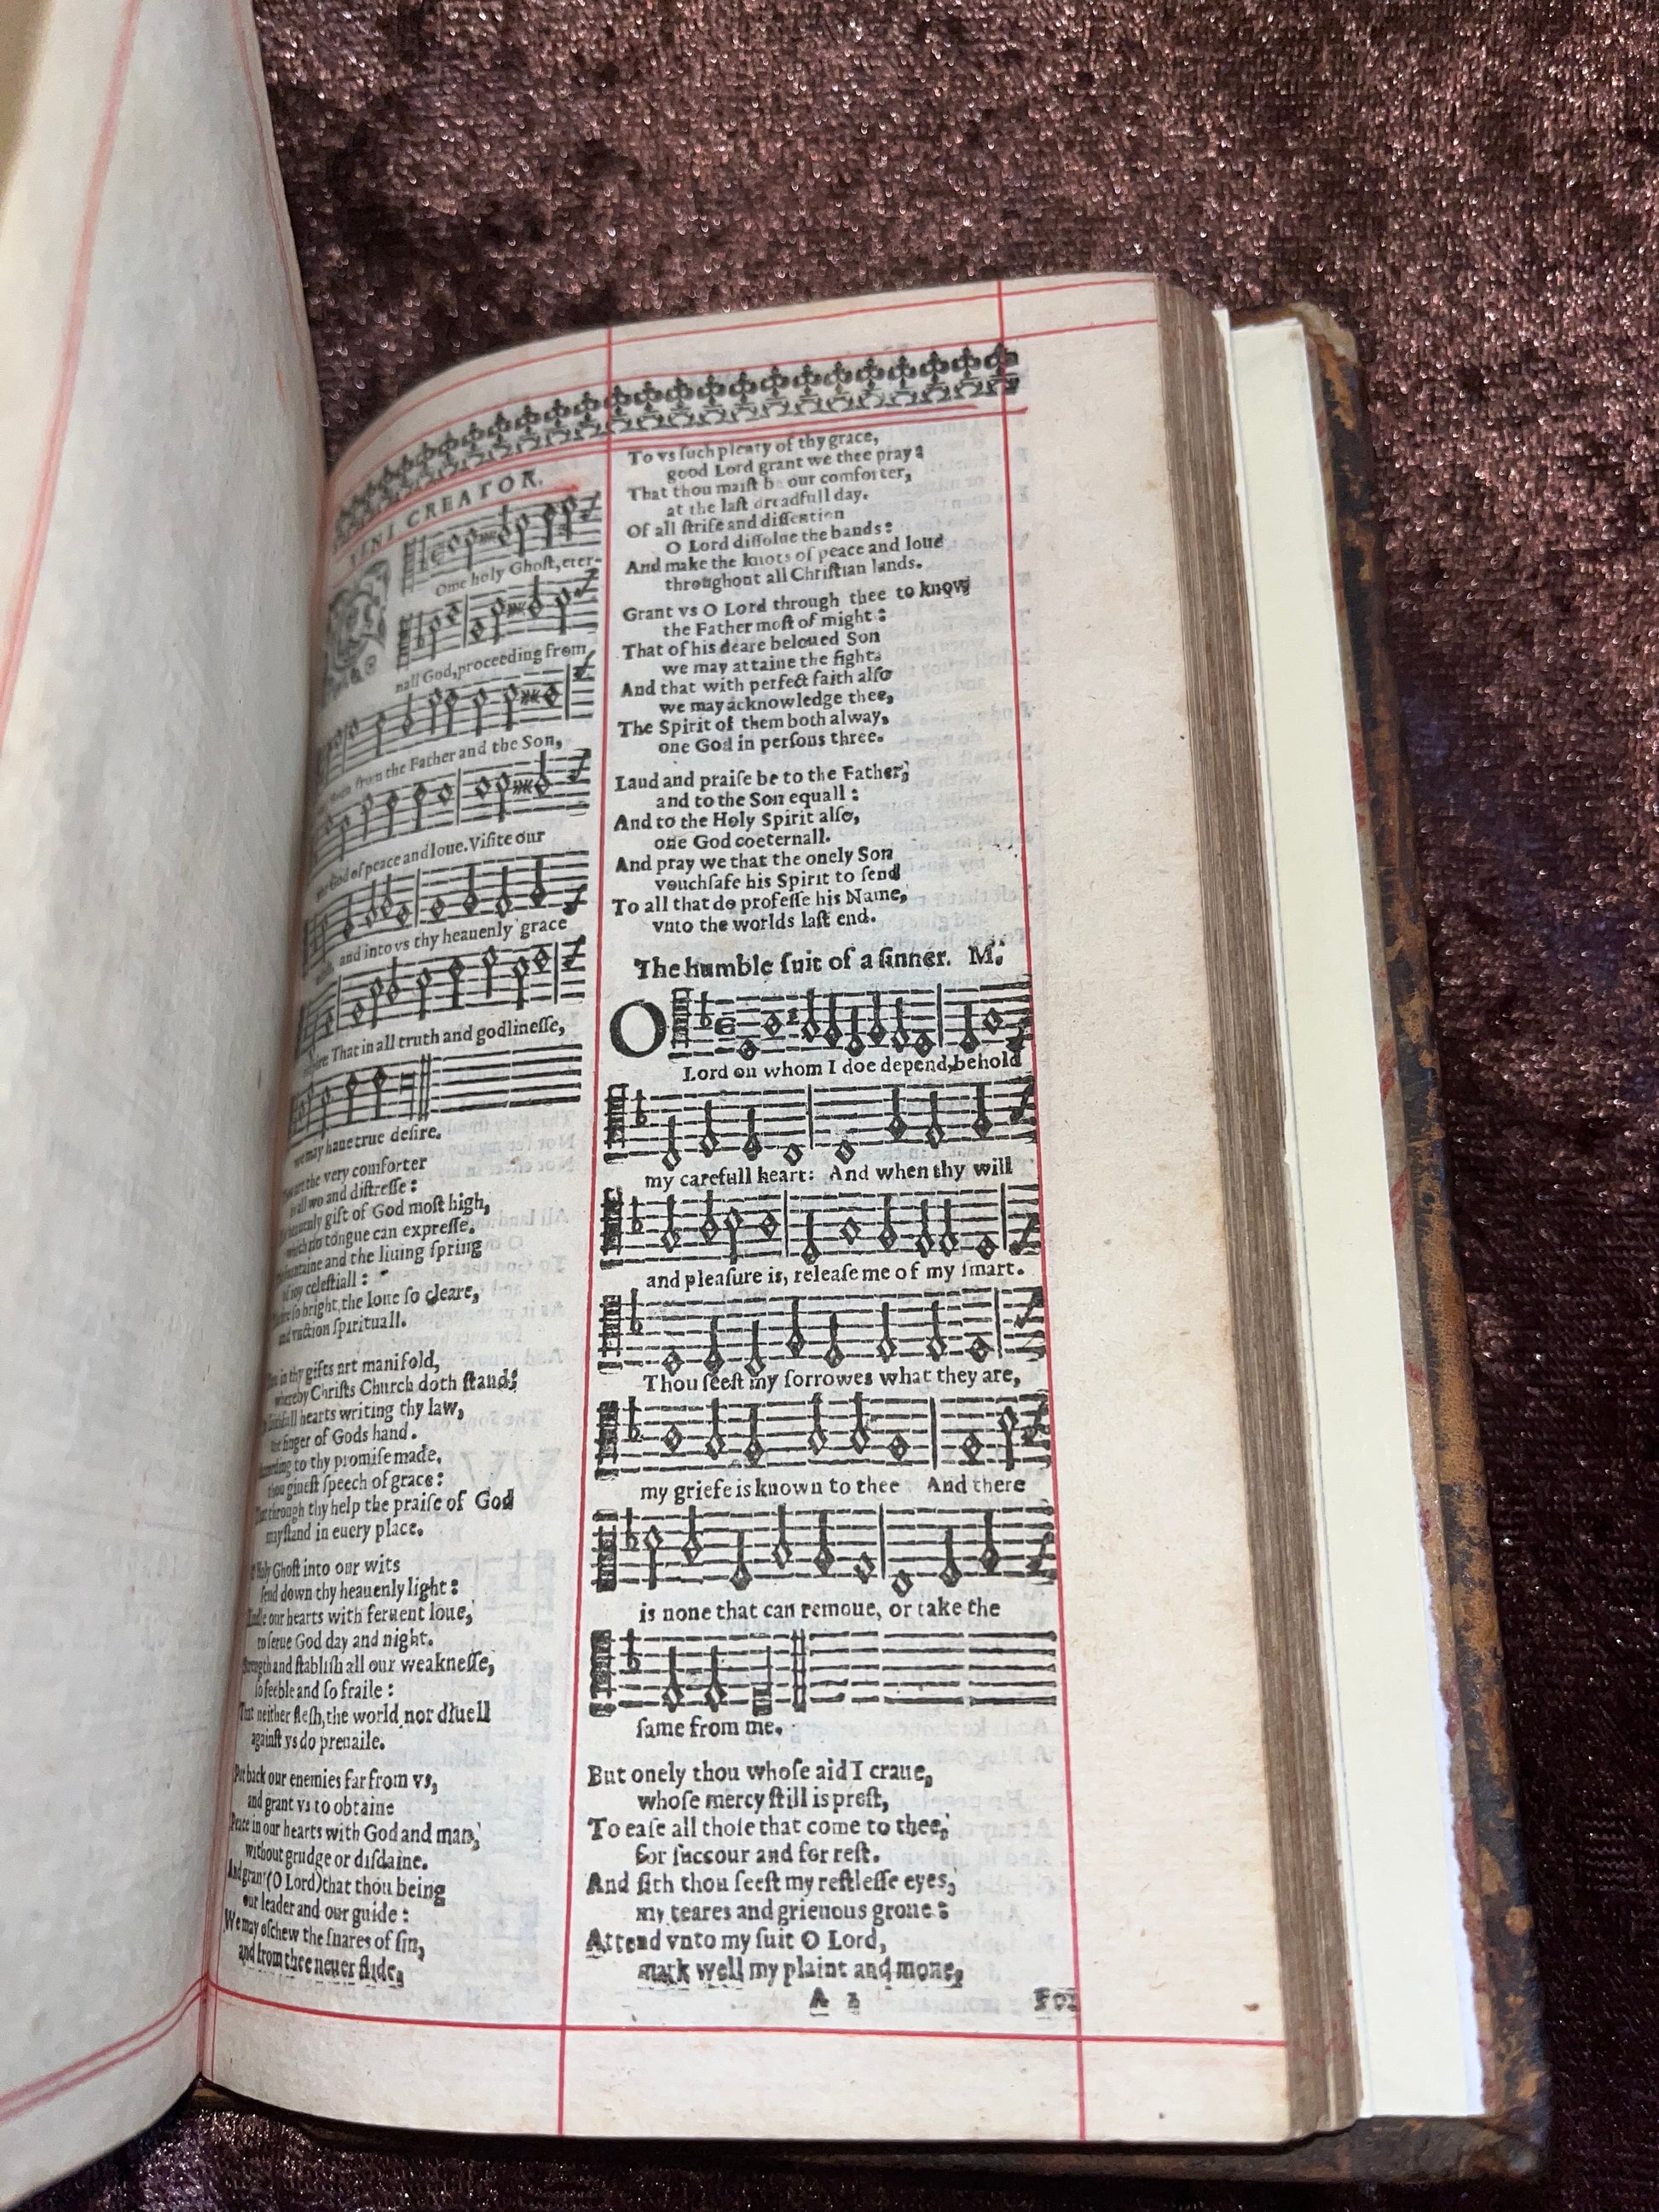 VENI CREATOR.
Ome holy Ghoſt, eter-
nall God, proceeding from
from the Father and the Son,
God of peace and loue. Viſite our
and into vs thy heauenly grace
That in all truth and godlineſſe,
we may haue true deſire.
art the very comforter
in all wo and diſtreſſe:
gift of God moſt high,
which no tongue can expreſſe.
and the liuing ſpring
of ioy celeſtiall:
ſo bright, the loue ſo cleare,
and vnction ſpirituall.
in thy gifts art manifold,
whereby Chriſts Church doth ſtand:
hearts writing thy law,
finger of Gods hand.
to thy promiſe made,
thou giueſt ſpeech of grace:
through thy help the praiſe of God
may ſtand in euery place.
Holy Ghoſt into our wits
ſend down thy heauenly light:
our hearts with feruent loue,
to ſerue God day and night.
and ſtabliſh all our weakneſſe,
ſo feeble and ſo fraile:
That neither fleſh, the world nor diuell
againſt vs do preuaile.
Put back our enemies far from vs,
and grant vs to obtaine
Peace in our hearts with God and man,
without grudge or diſdaine.
And grant (O Lord) that thou being
our leader and our guide:
We may eſchew the ſnares of ſin,
and from thee neuer ſlide,
To vs ſuch plenty of thy grace,
good Lord grant we thee pray:
That thou maiſt b our comforter,
at the laſt dreadfull day.
Of all ſtrife and diſſention
O Lord diſſolue the bands:
And make the knots of peace and loue
throughout all Chriſtian lands.
Grant vs O Lord through thee to know
the Father moſt of might:
That of his deare beloued Son
we may attaine the ſight.
And that with perfect faith alſo
we may acknowledge thee,
The Spirit of them both alway,
one God in perſons three.
Laud and praiſe be to the Father,
and to the Son equall:
And to the Holy Spirit alſo,
one God coeternall.
And pray we that the onely Son
vouchſafe his Spirit to ſend
To all that do profeſſe his Name,
vnto the worlds laſt end.
The humble ſuit of a ſinner. M.
O
Lord on whom I doe depend, behold
my carefull heart: And when thy will
and pleaſure is, releaſe me of my ſmart.
Thou ſeeſt my ſorrowes what they are,
my griefe is known to thee And there
is none that can remoue, or take the
ſame from me.
But onely thou whoſe aid I craue,
whoſe mercy ſtill is preſt,
To eaſe all thoſe that come to thee,
for ſuccour and for reſt.
And ſith thou ſeeſt my reſtleſſe eyes,
my teares and grieuous grone:
Attend vnto my ſuit O Lord,
mark well my plaint and mone,
A
For